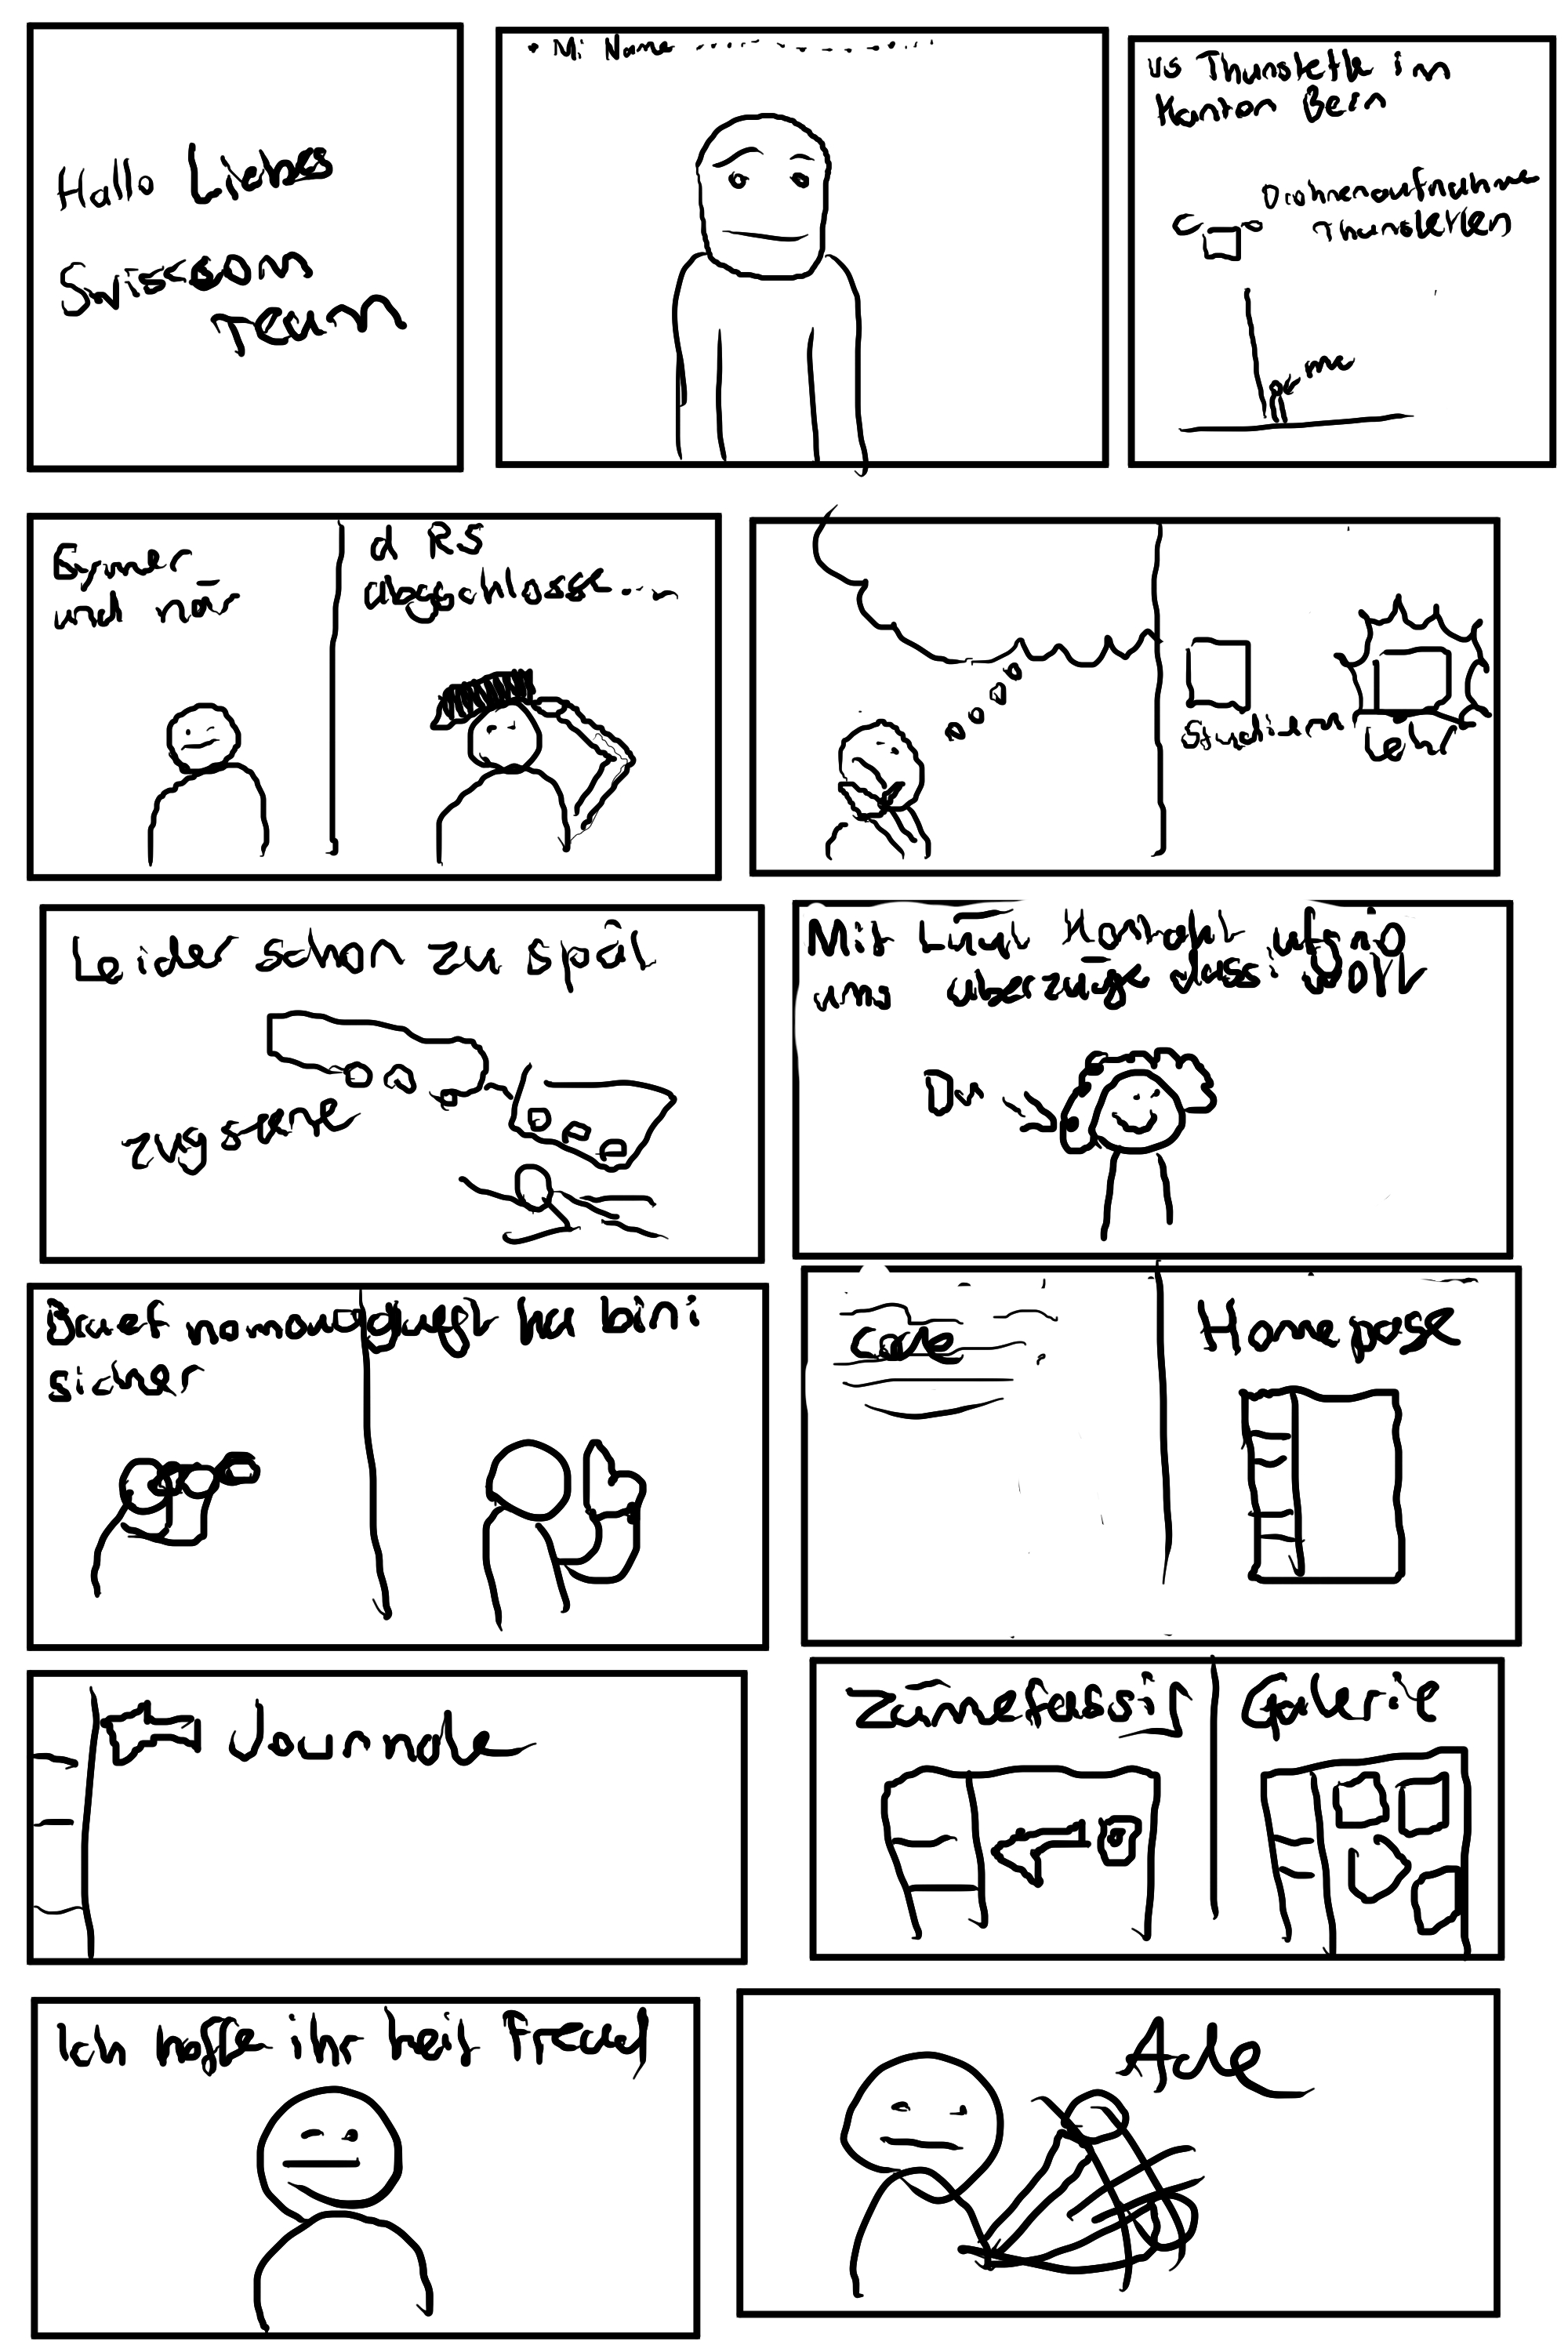 Hallo Liebes
Swisscom
Team
• Mi Name ..............
us Thunstette im
Kanton Bern
Drohnenaufnahme
Thunstetten
me
Gymer
und när
d RS
abgschlosse...
Studiern
Lehr
Leider schon zu spät
zugszene
Mit Lüüt Kontakt ufgno
uns überzüge dassi wott
Du
Bruef nomau gluegt ha bini
sicher
Code
Homepage
Journale
Zämefassig
Galerie
Ich hoffe ihr heit Freud
Ade